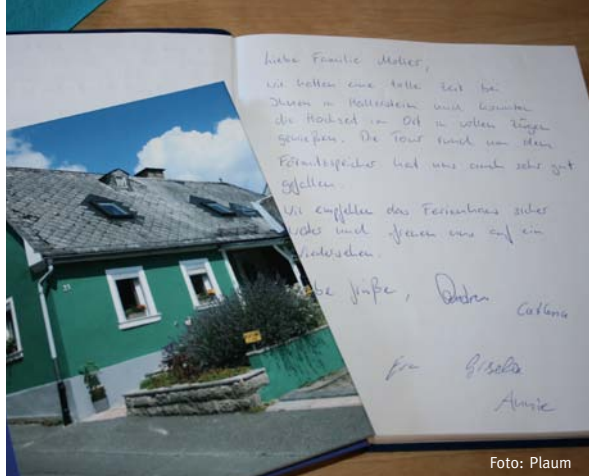 Liebe Familie Moller,
wir hatten eine tolle Zeit bei
Ihnen in Hallerstein und konnten
die Hochzeit im Ort in vollen Zügen
genießen. Die Tour rund um den
Förmitzspeicher hat uns auch sehr gut
gefallen.
Wir empfehlen das Ferienhaus sicher
weiter und freuen uns auf ein
Wiedersehen.
Grüße,
Gisela
Annie
33
Foto: Plaum